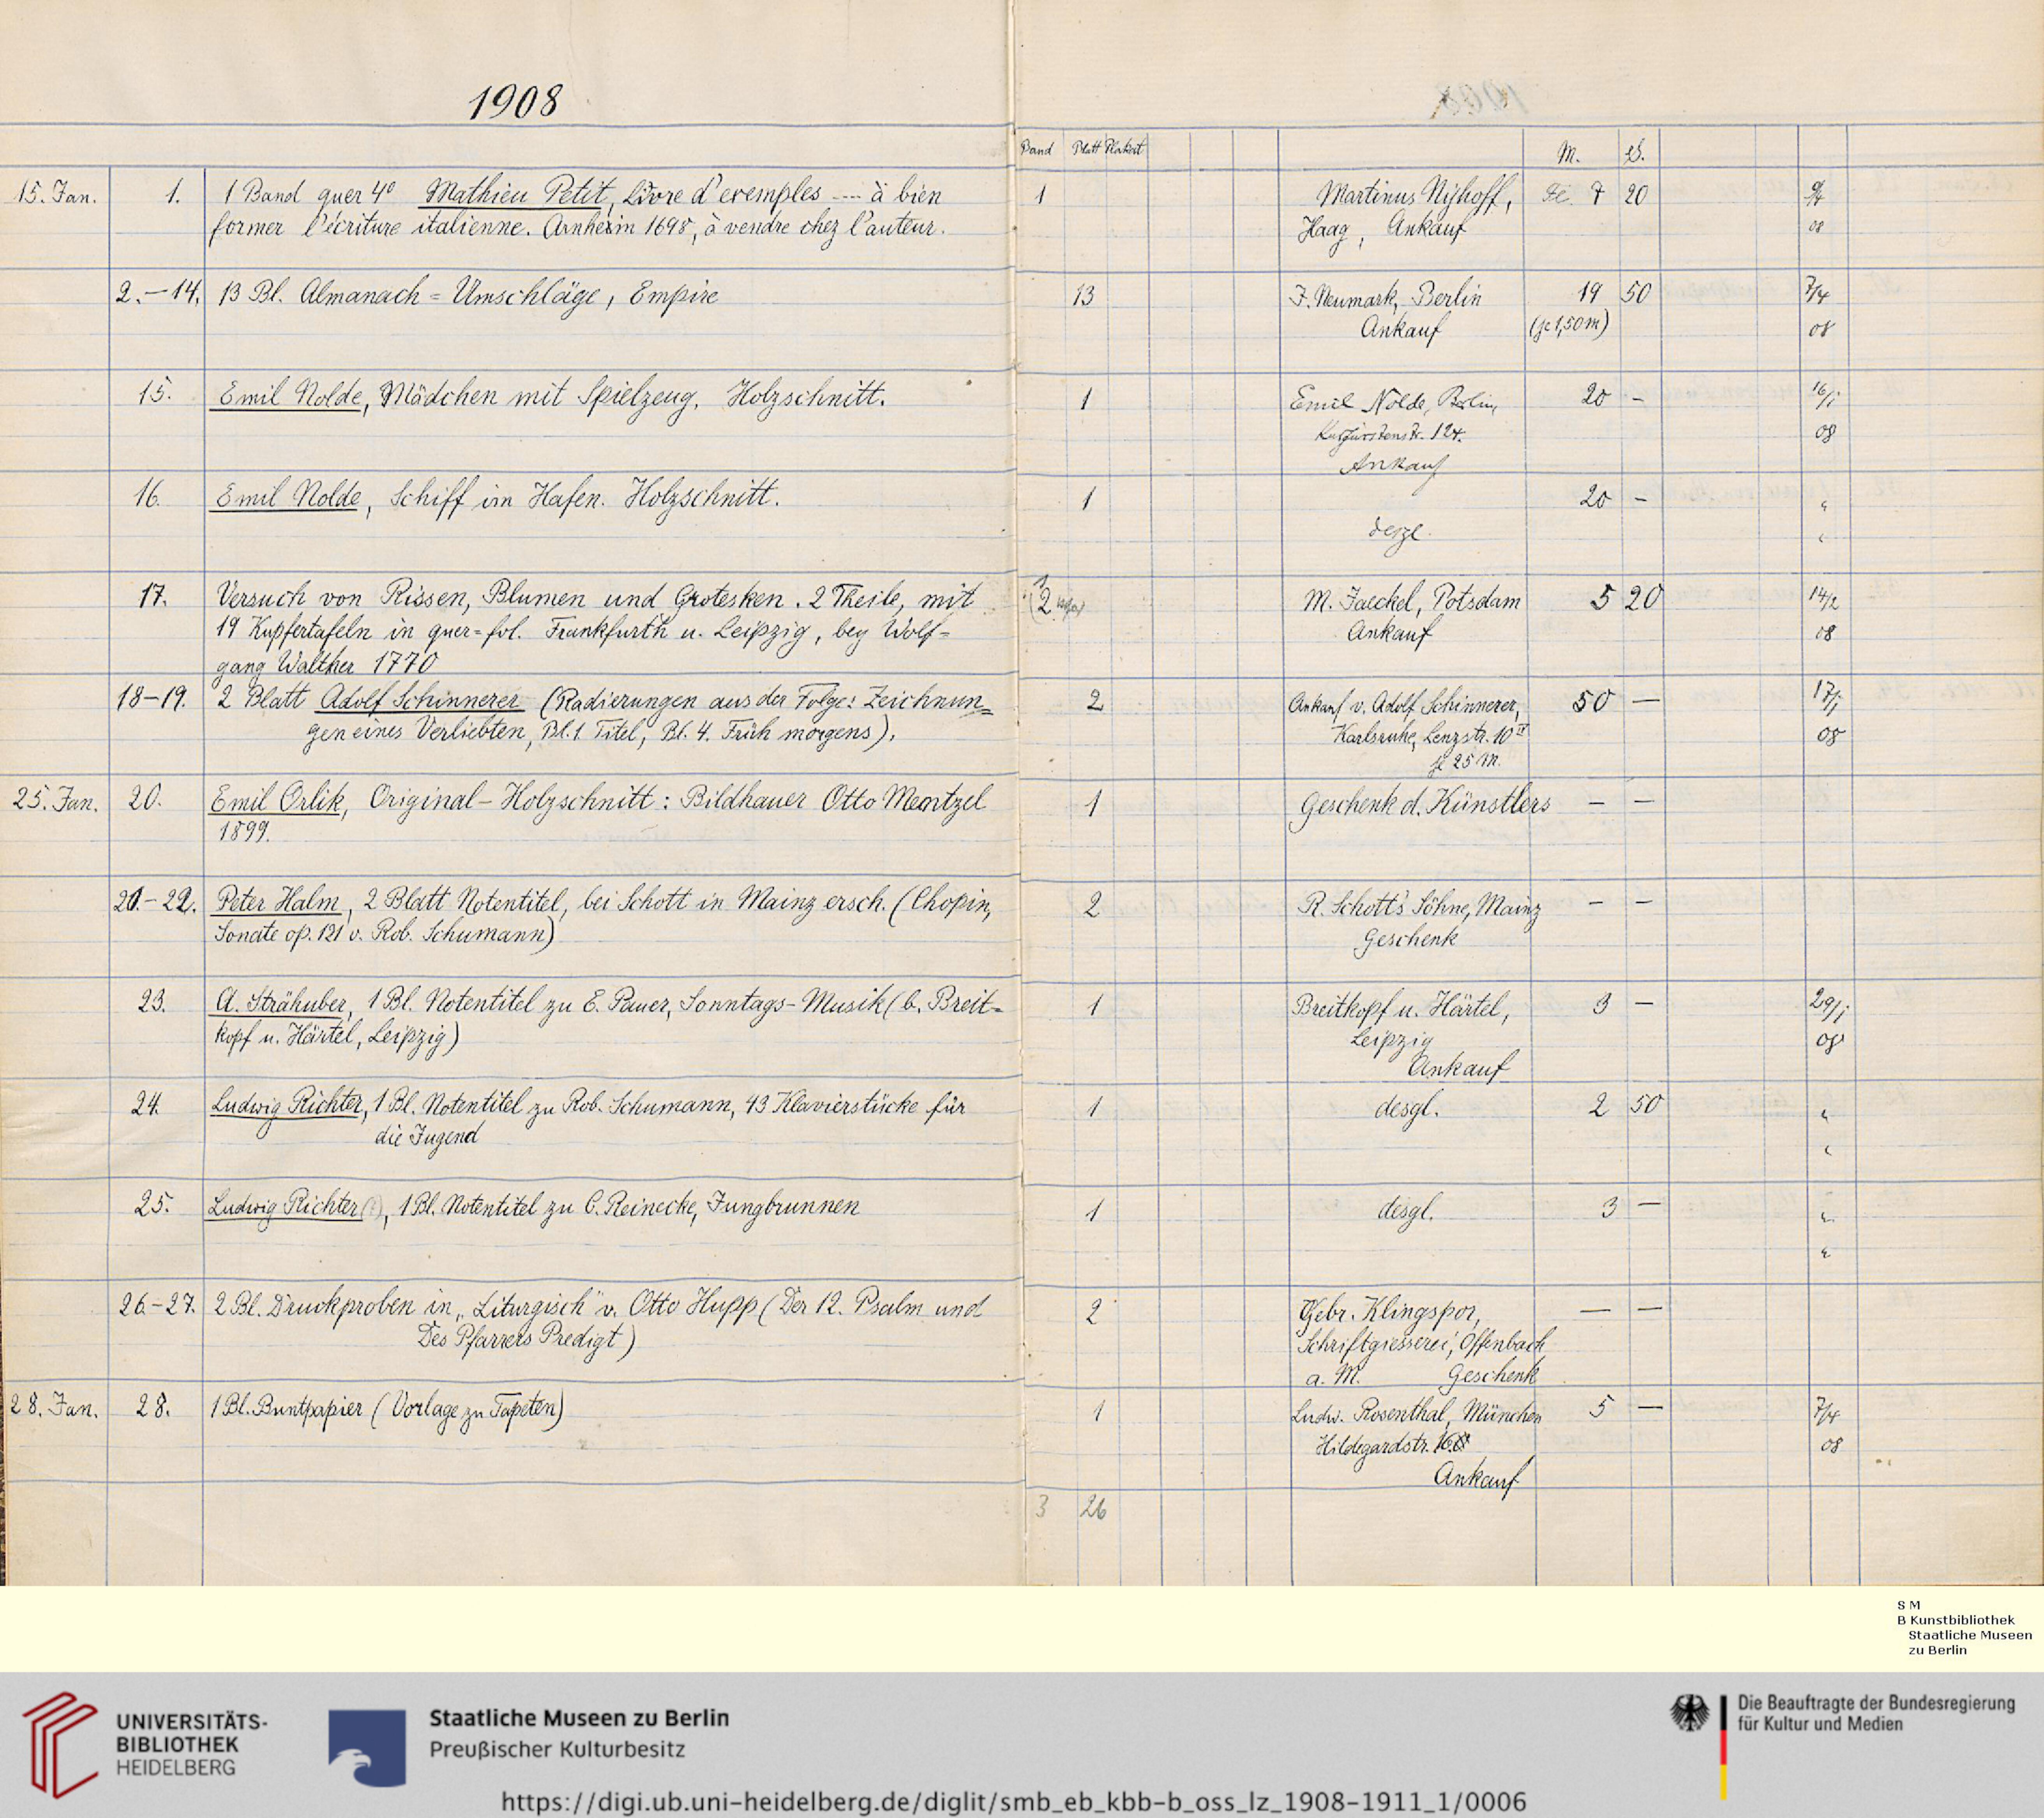 1908
Band Blatt Plakat M. S.
15. Jan. 1. 1 Band quer 4° Mathieu Petit, Livre d'exemples ---- à bien 1 Martinus Nijhoff, 7 20
former l'écriture italienne. Arnheim 1698, à vendre chez l'auteur. Haag, Ankauf 08
2.–14. 13 Bl. Almanach=Umschläge, Empire 13 J. Neumark, Berlin 19 50 7/4
Ankauf (je 1,50 m) 08
15. Emil Nolde, Mädchen mit Spielzeug. Holzschnitt. 1 Emil Nolde, Berlin, 20 – 16/1
Kurfürstenstr. 124. 08
Ankauf
16. Emil Nolde, Schiff im Hafen. Holzschnitt. 1 20 – "
desgl. "
17. Versuch von Rissen, Blumen und Grotesken. 2 Theile, mit 2 M. Jaeckel, Potsdam 5 20 14/2
19 Kupfertafeln in quer=fol. Frankfurth u. Leipzig, bey Wolf= Ankauf 08
gang Walther 1770
18–19. 2 Blatt Adolf Schinnerer (Radierungen aus der Folge: Zeichnun= 2 Ankauf v. Adolf Schinnerer, 50 — 17/1
gen eines Verliebten, Bl. 1 Titel, Bl. 4. Früh morgens). Karlsruhe, Lenzstr. 10 II 08
je 25 M.
25. Jan. 20. Emil Orlik, Original-Holzschnitt: Bildhauer Otto 1 Geschenk d. Künstlers – –
1899.
21.–22. Peter Halm, 2 Blatt Notentitel, bei Schott in Mainz ersch. (Chopin, 2 R. Schott's Söhne, Mainz – –
Sonate op. 121 v. Rob. Schumann) Geschenk
23. A. Strähuber, 1 Bl. Notentitel zu E. Pauer, Sonntags-Musik (b. Breit= 1 Breitkopf u. Härtel, 3 – 29/1
kopf u. Härtel, Leipzig) Leipzig 08
Ankauf
24. Ludwig Richter, 1 Bl. Notentitel zu Rob. Schumann, 43 Klavierstücke für 1 desgl. 2 50 "
die Jugend "
25. Ludwig Richter (?), 1 Bl. Notentitel zu C. Reinecke, Jungbrunnen 1 desgl. 3 — "
"
26.–27. 2 Bl. Druckproben in „Liturgisch" v. Otto Hupp (Der 12. Psalm und 2 Gebr. Klingspor, — —
Des Pfarrers Predigt) Schriftgiesserei, Offenbach
a. M. Geschenk
28. Jan. 28. 1 Bl. Buntpapier (Vorlage zu Tapeten) 1 Ludw. Rosenthal, München 5 — 7/4
Hildegardstr. 08
Ankauf
3 26
S M
B Kunstbibliothek
Staatliche Museen
zu Berlin
UNIVERSITÄTS-
BIBLIOTHEK
HEIDELBERG
Staatliche Museen zu Berlin
Preußischer Kulturbesitz
Die Beauftragte der Bundesregierung
für Kultur und Medien
https://digi.ub.uni-heidelberg.de/diglit/smb_eb_kbb-b_oss_lz_1908-1911_1/0006